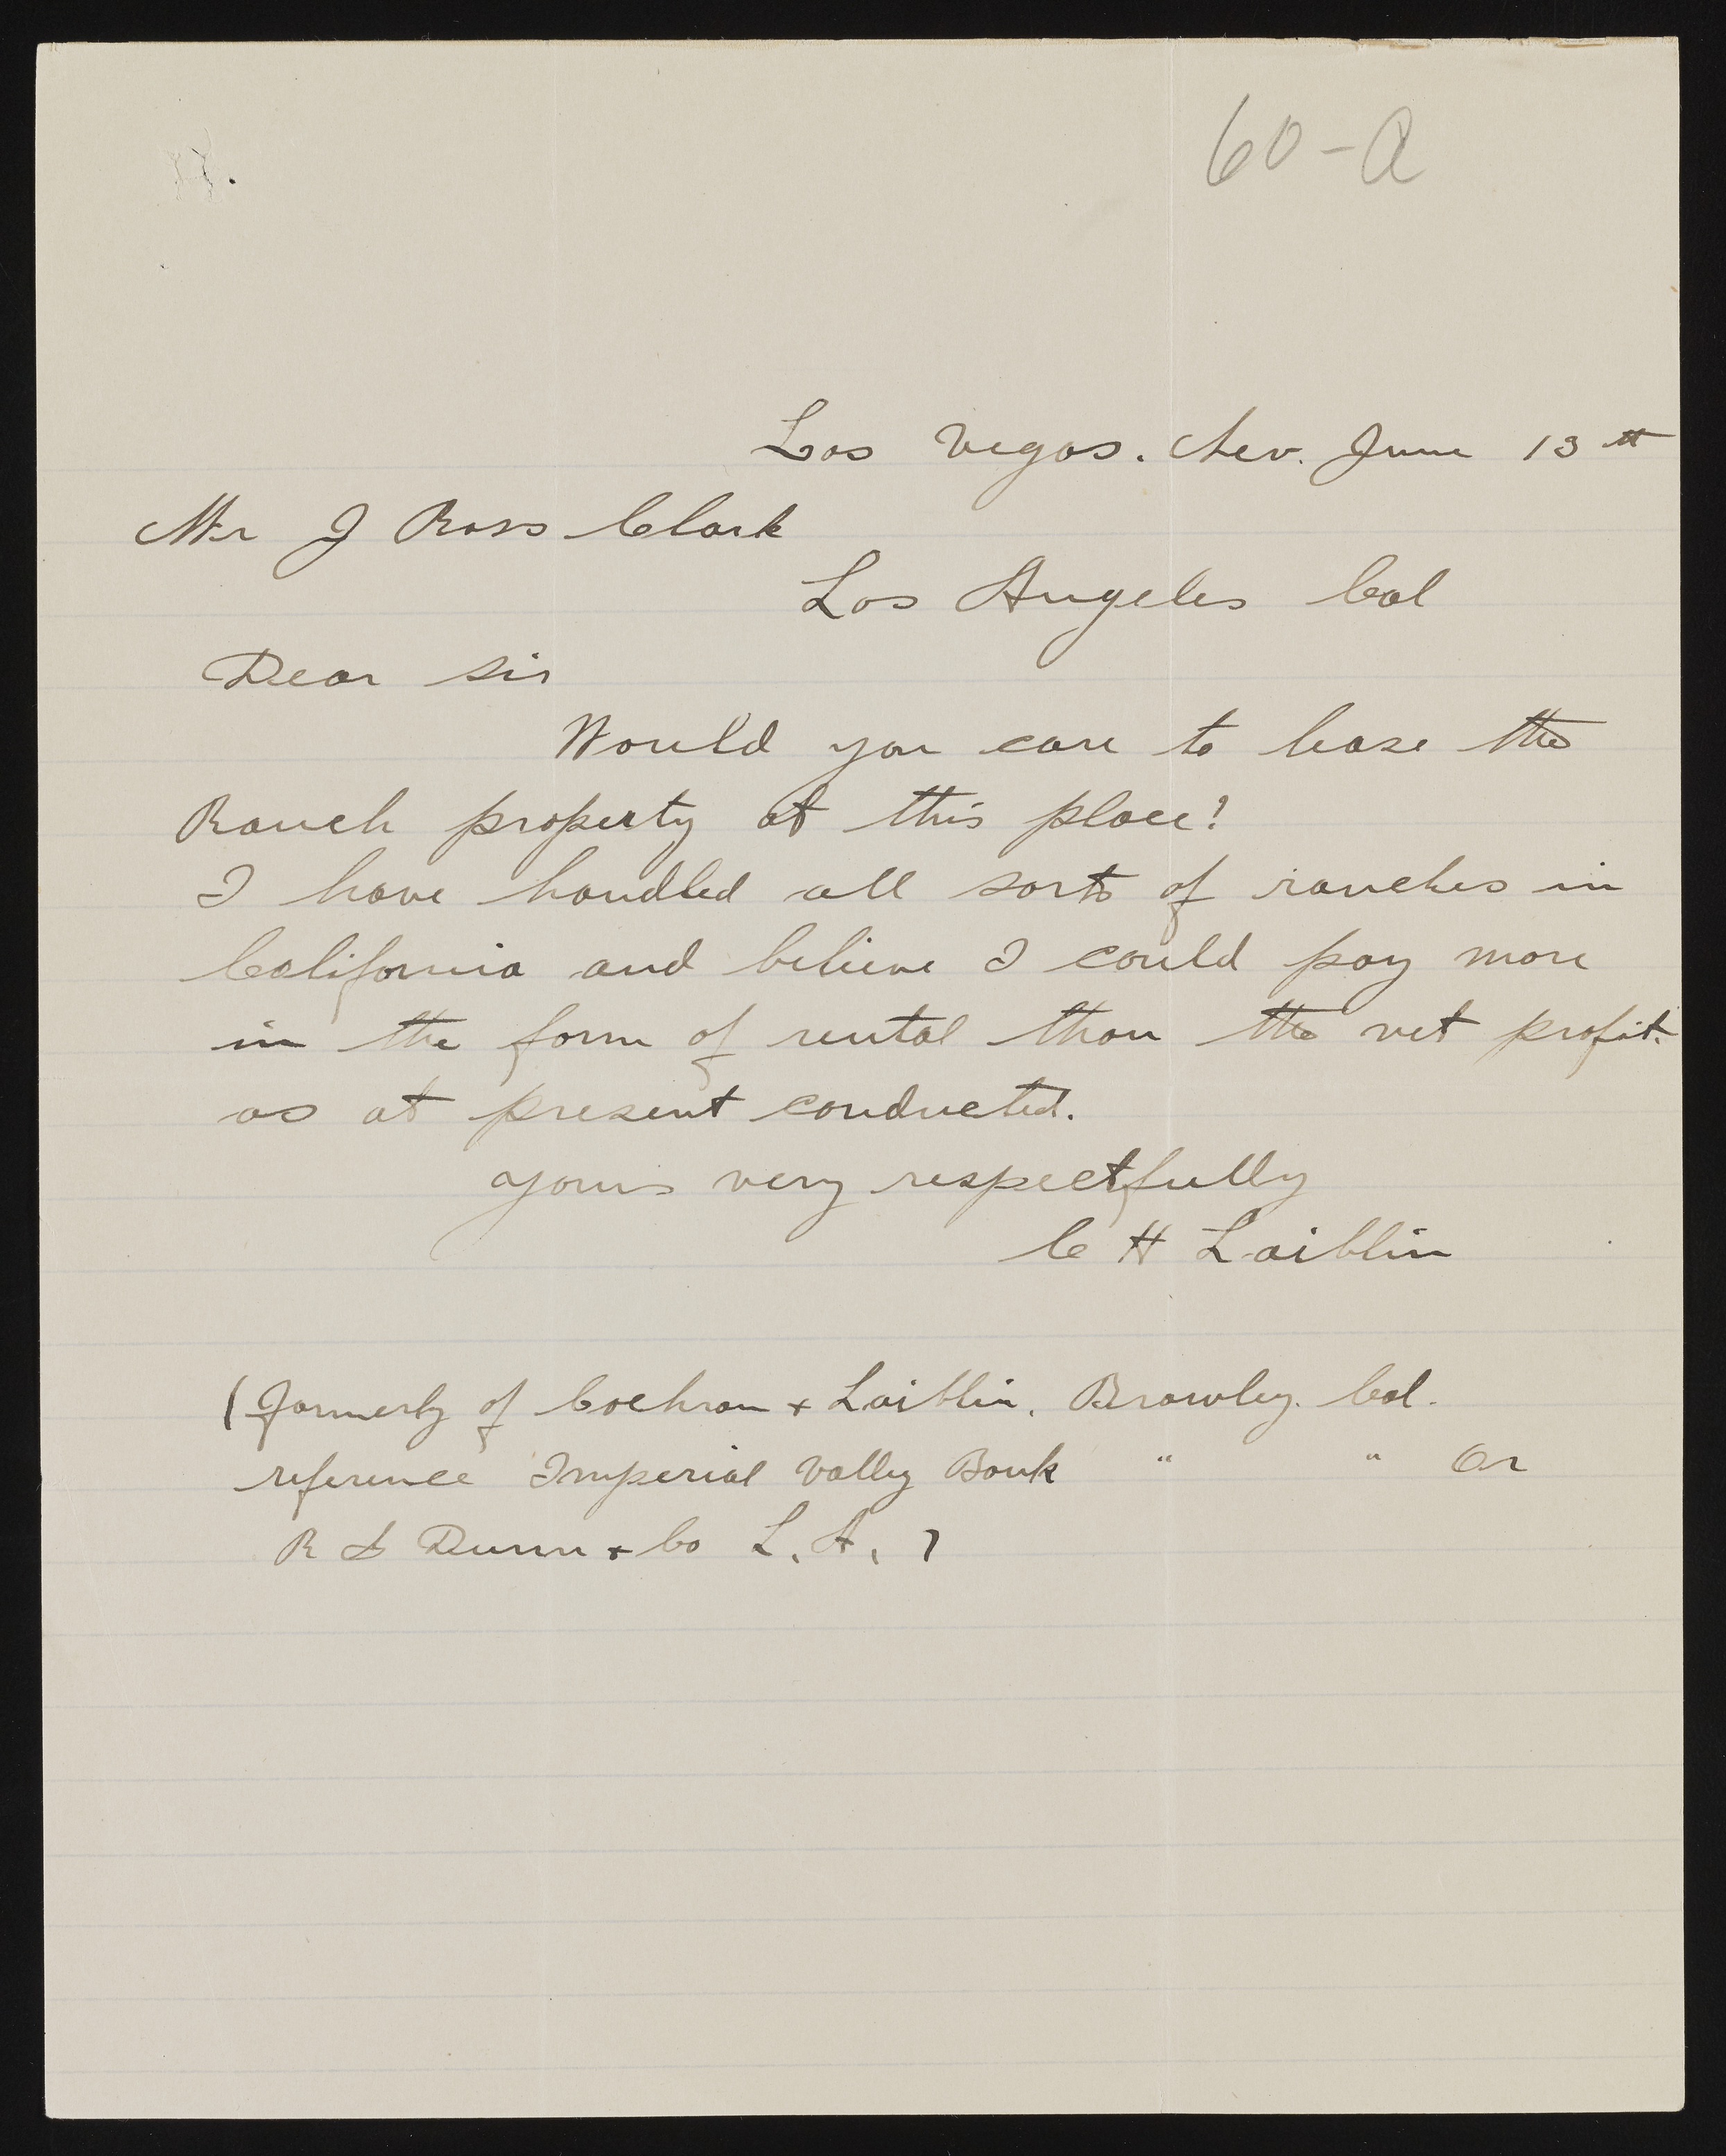 60-A
Las Vegas. Nev. June 13th
Mr J Ross Clark
Los Angeles Cal
Dear Sir
Would you care to lease the
Ranch property at this place?
I have handled all sorts of ranches in
California and believe I could pay more
in the form of rental than the net profit.
as at present conducted.
Yours very respectfully
C H Laiblin
(Formerly of Cochran + Laiblin, Brawley. Cal.
reference Imperial Valley Bank " " Or
R Dunn + Co L.A.)